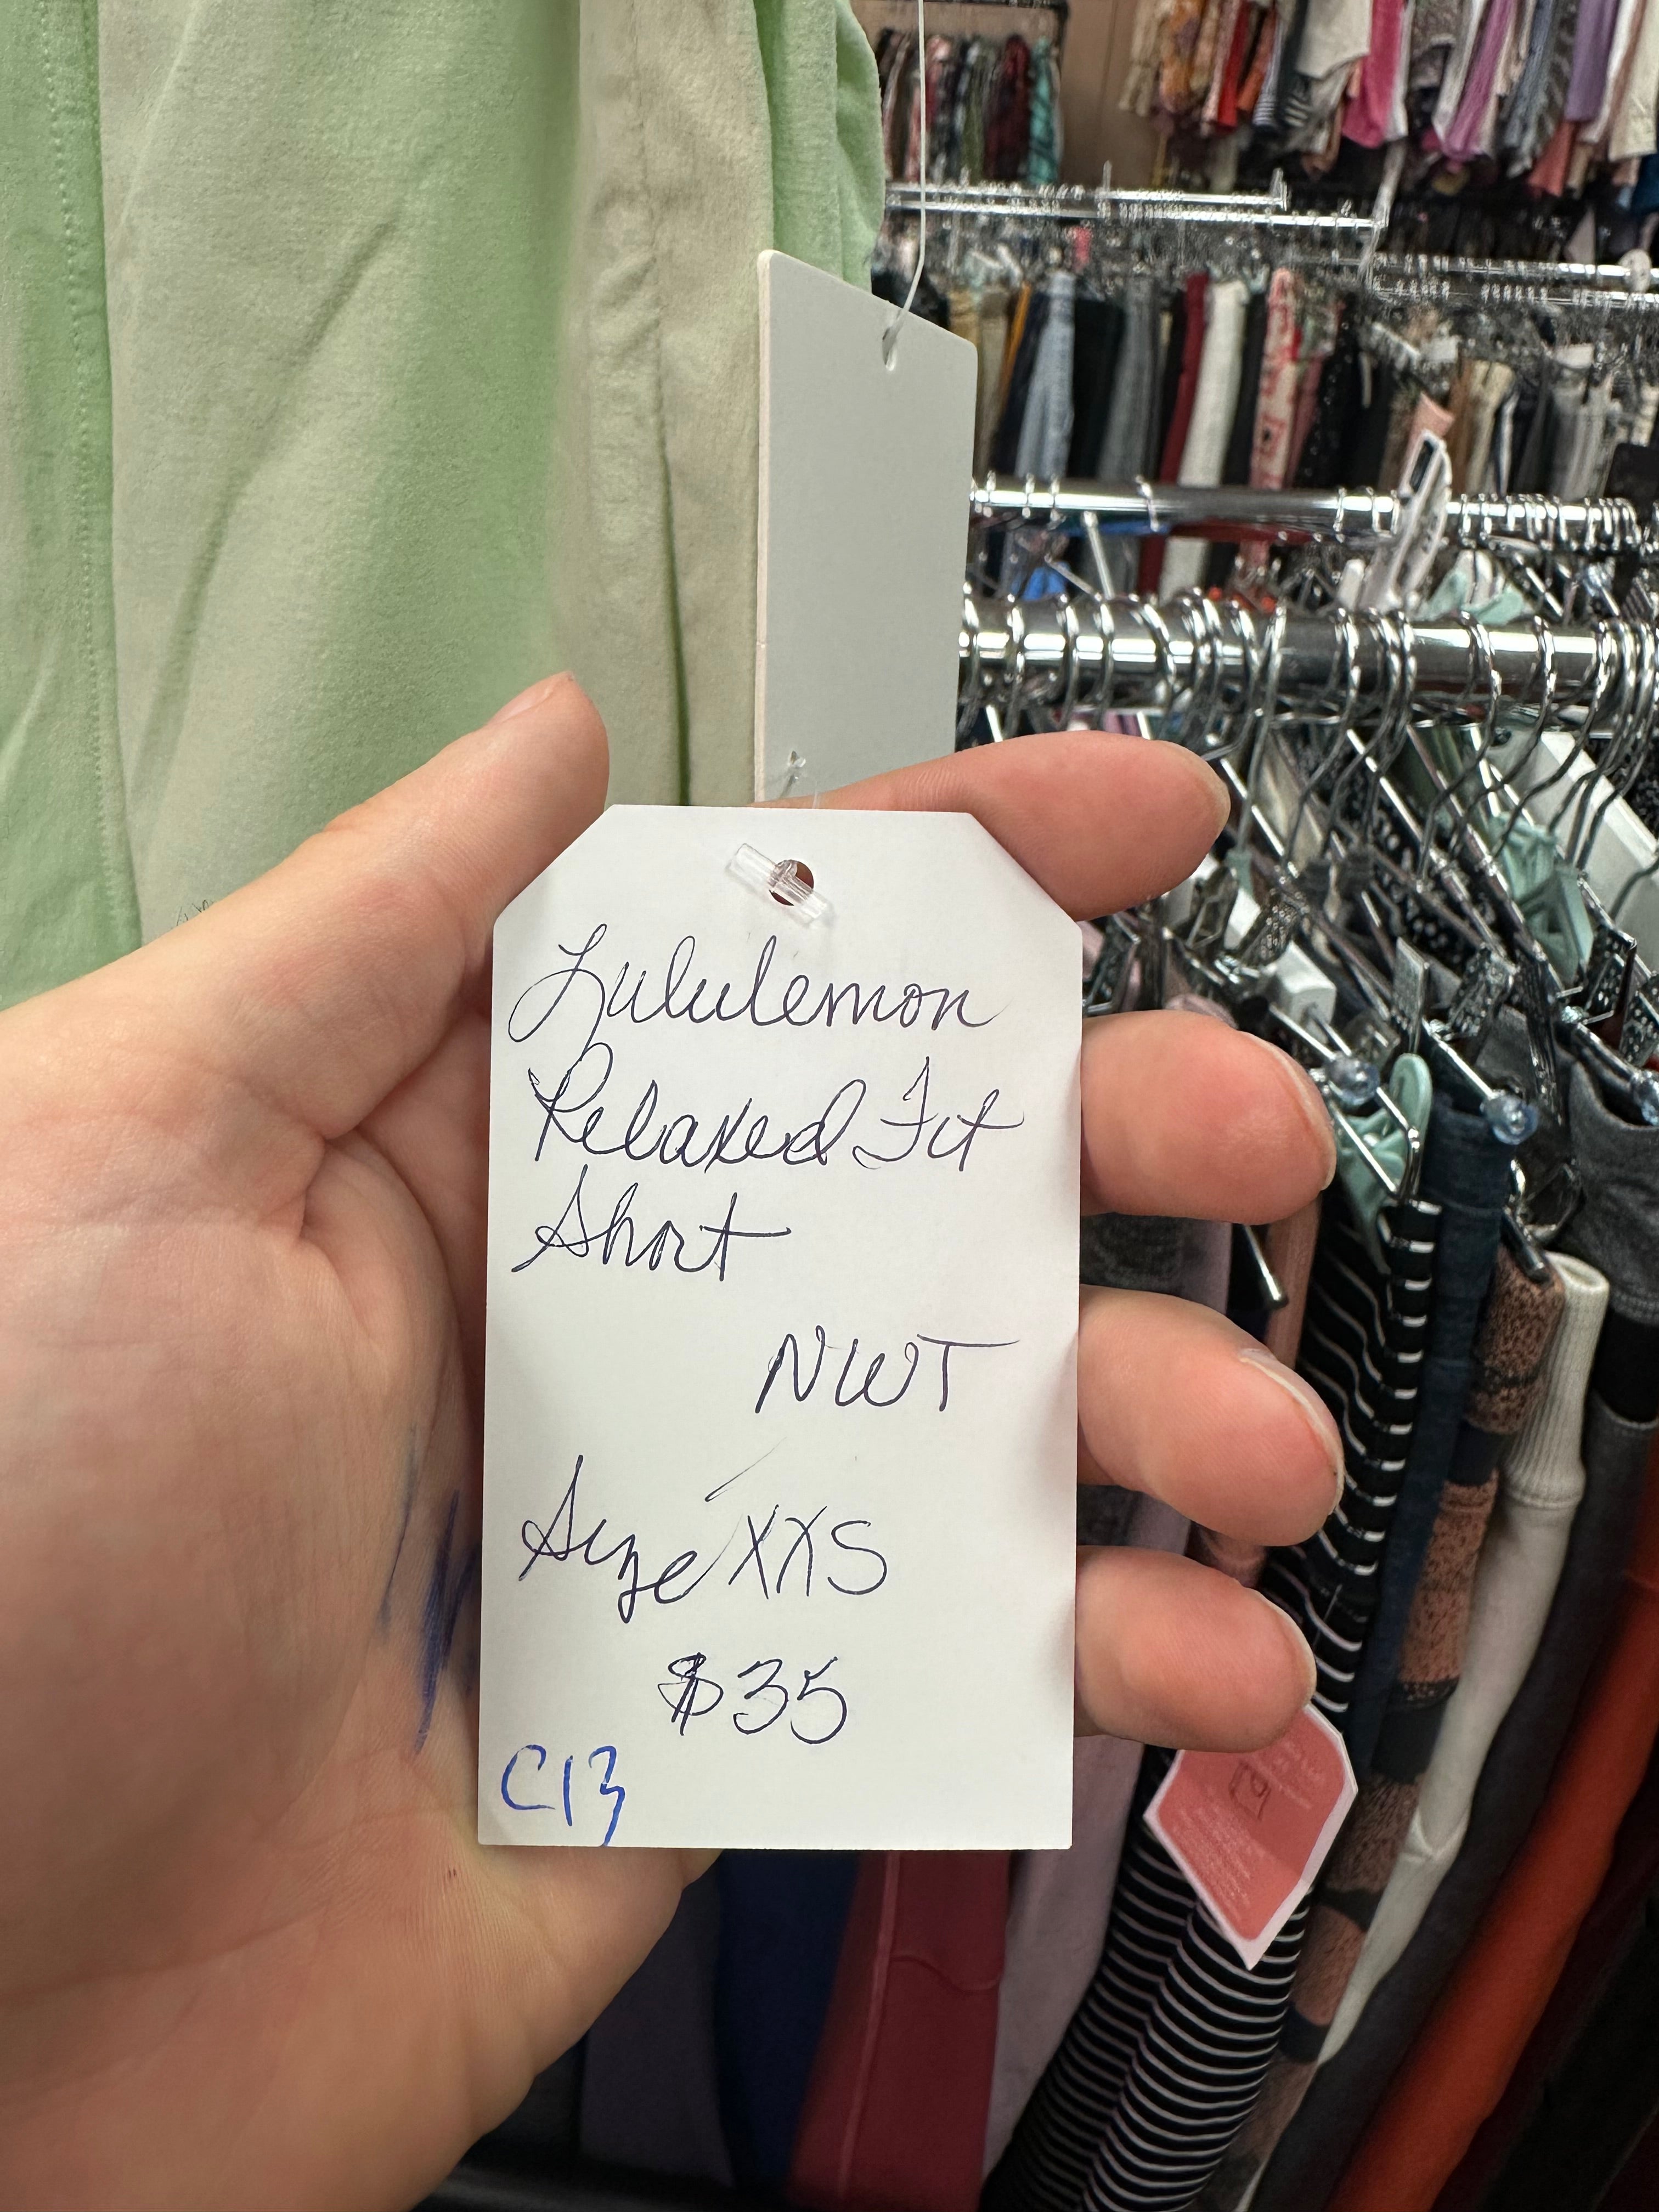 Lululemon
Relaxed Fit
Short
NWT
Size XXS
$35
C13